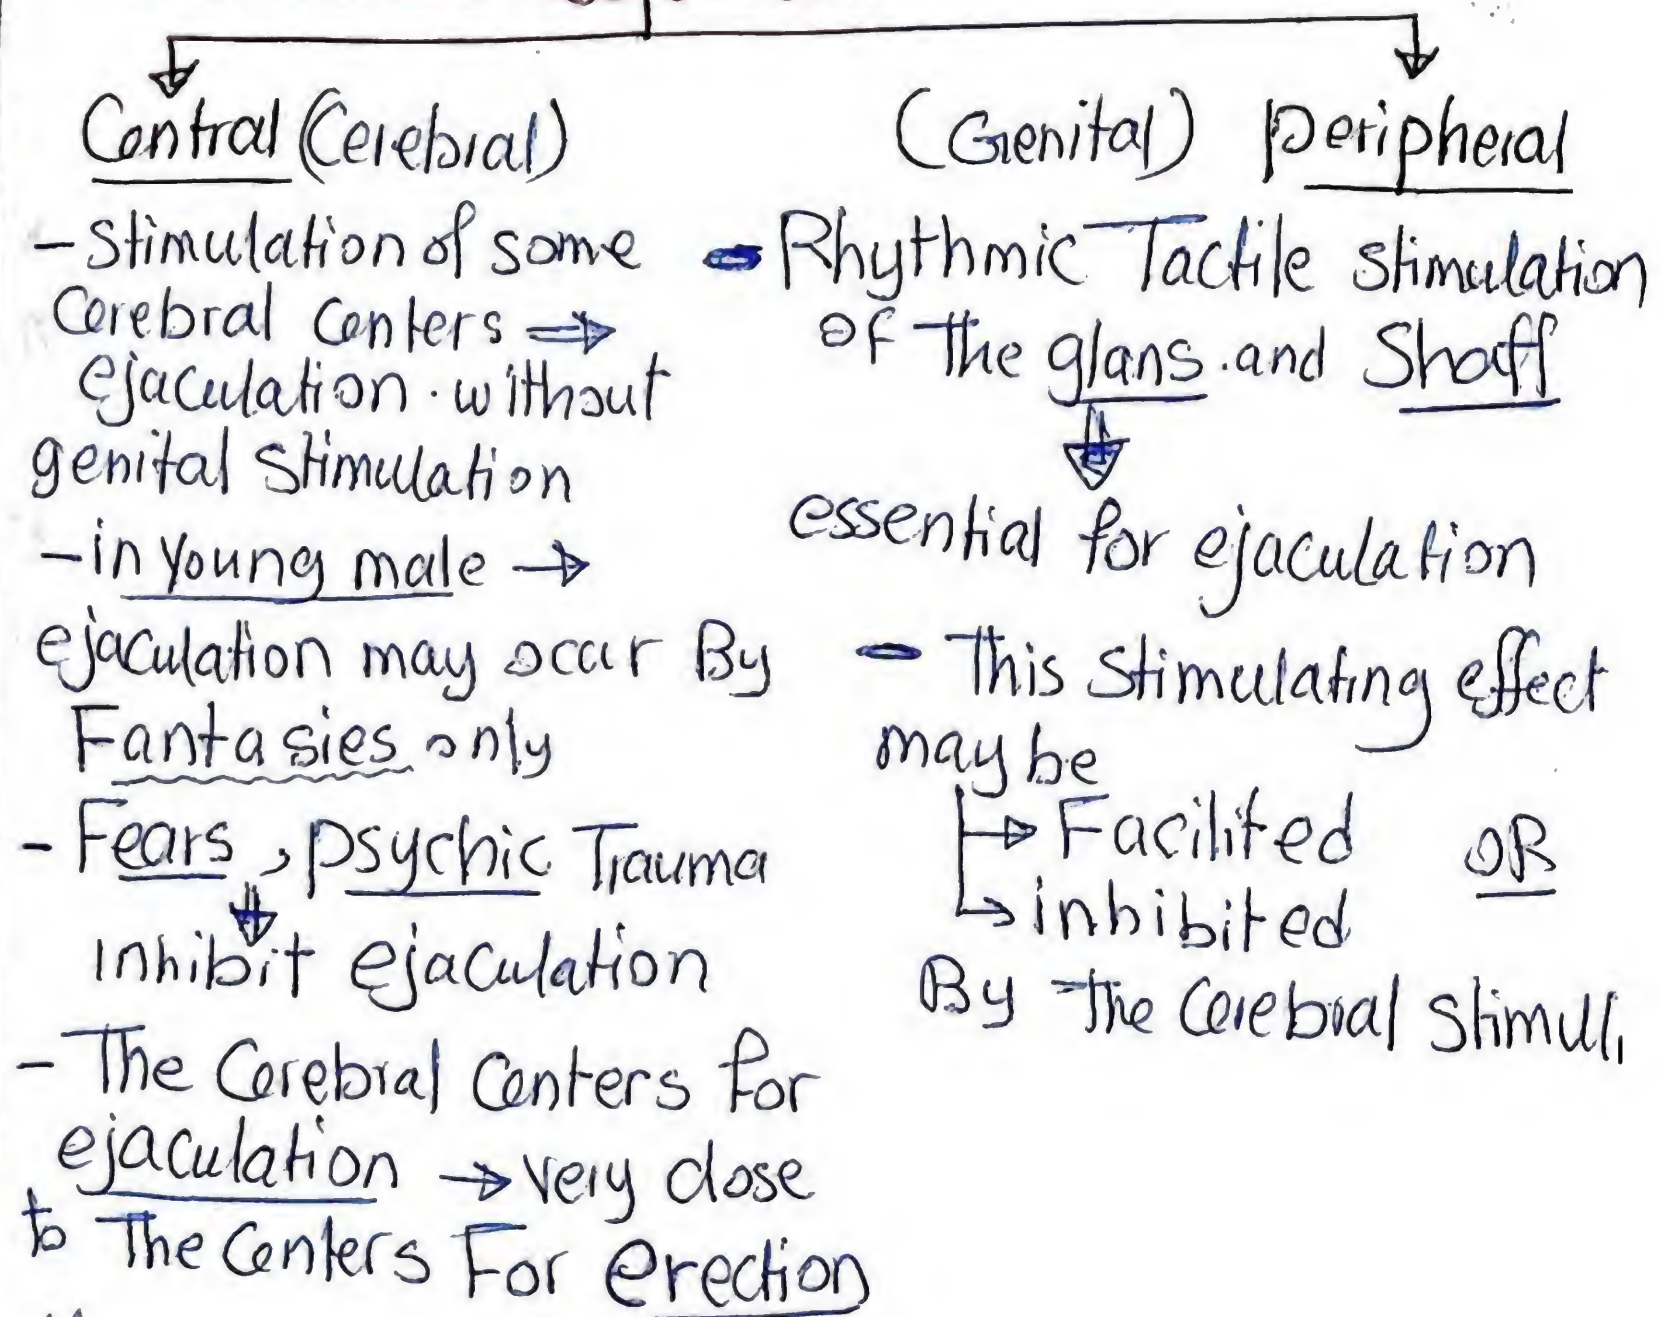 Central (Cerebral)
- Stimulation of some
Cerebral Centers ⇒
ejaculation. without
genital Stimulation
- in young male →
ejaculation may occur By
Fantasies only
- Fears, psychic Trauma
inhibit ejaculation
- The Cerebral Centers for
ejaculation → very close
to The Centers For erection
(Genital) peripheral
- Rhythmic Tactile stimulation
of The glans. and Shaff
essential for ejaculation
- This Stimulating effect
may be
→ Facilited OR
→ inhibited
By The Cerebral Stimuli